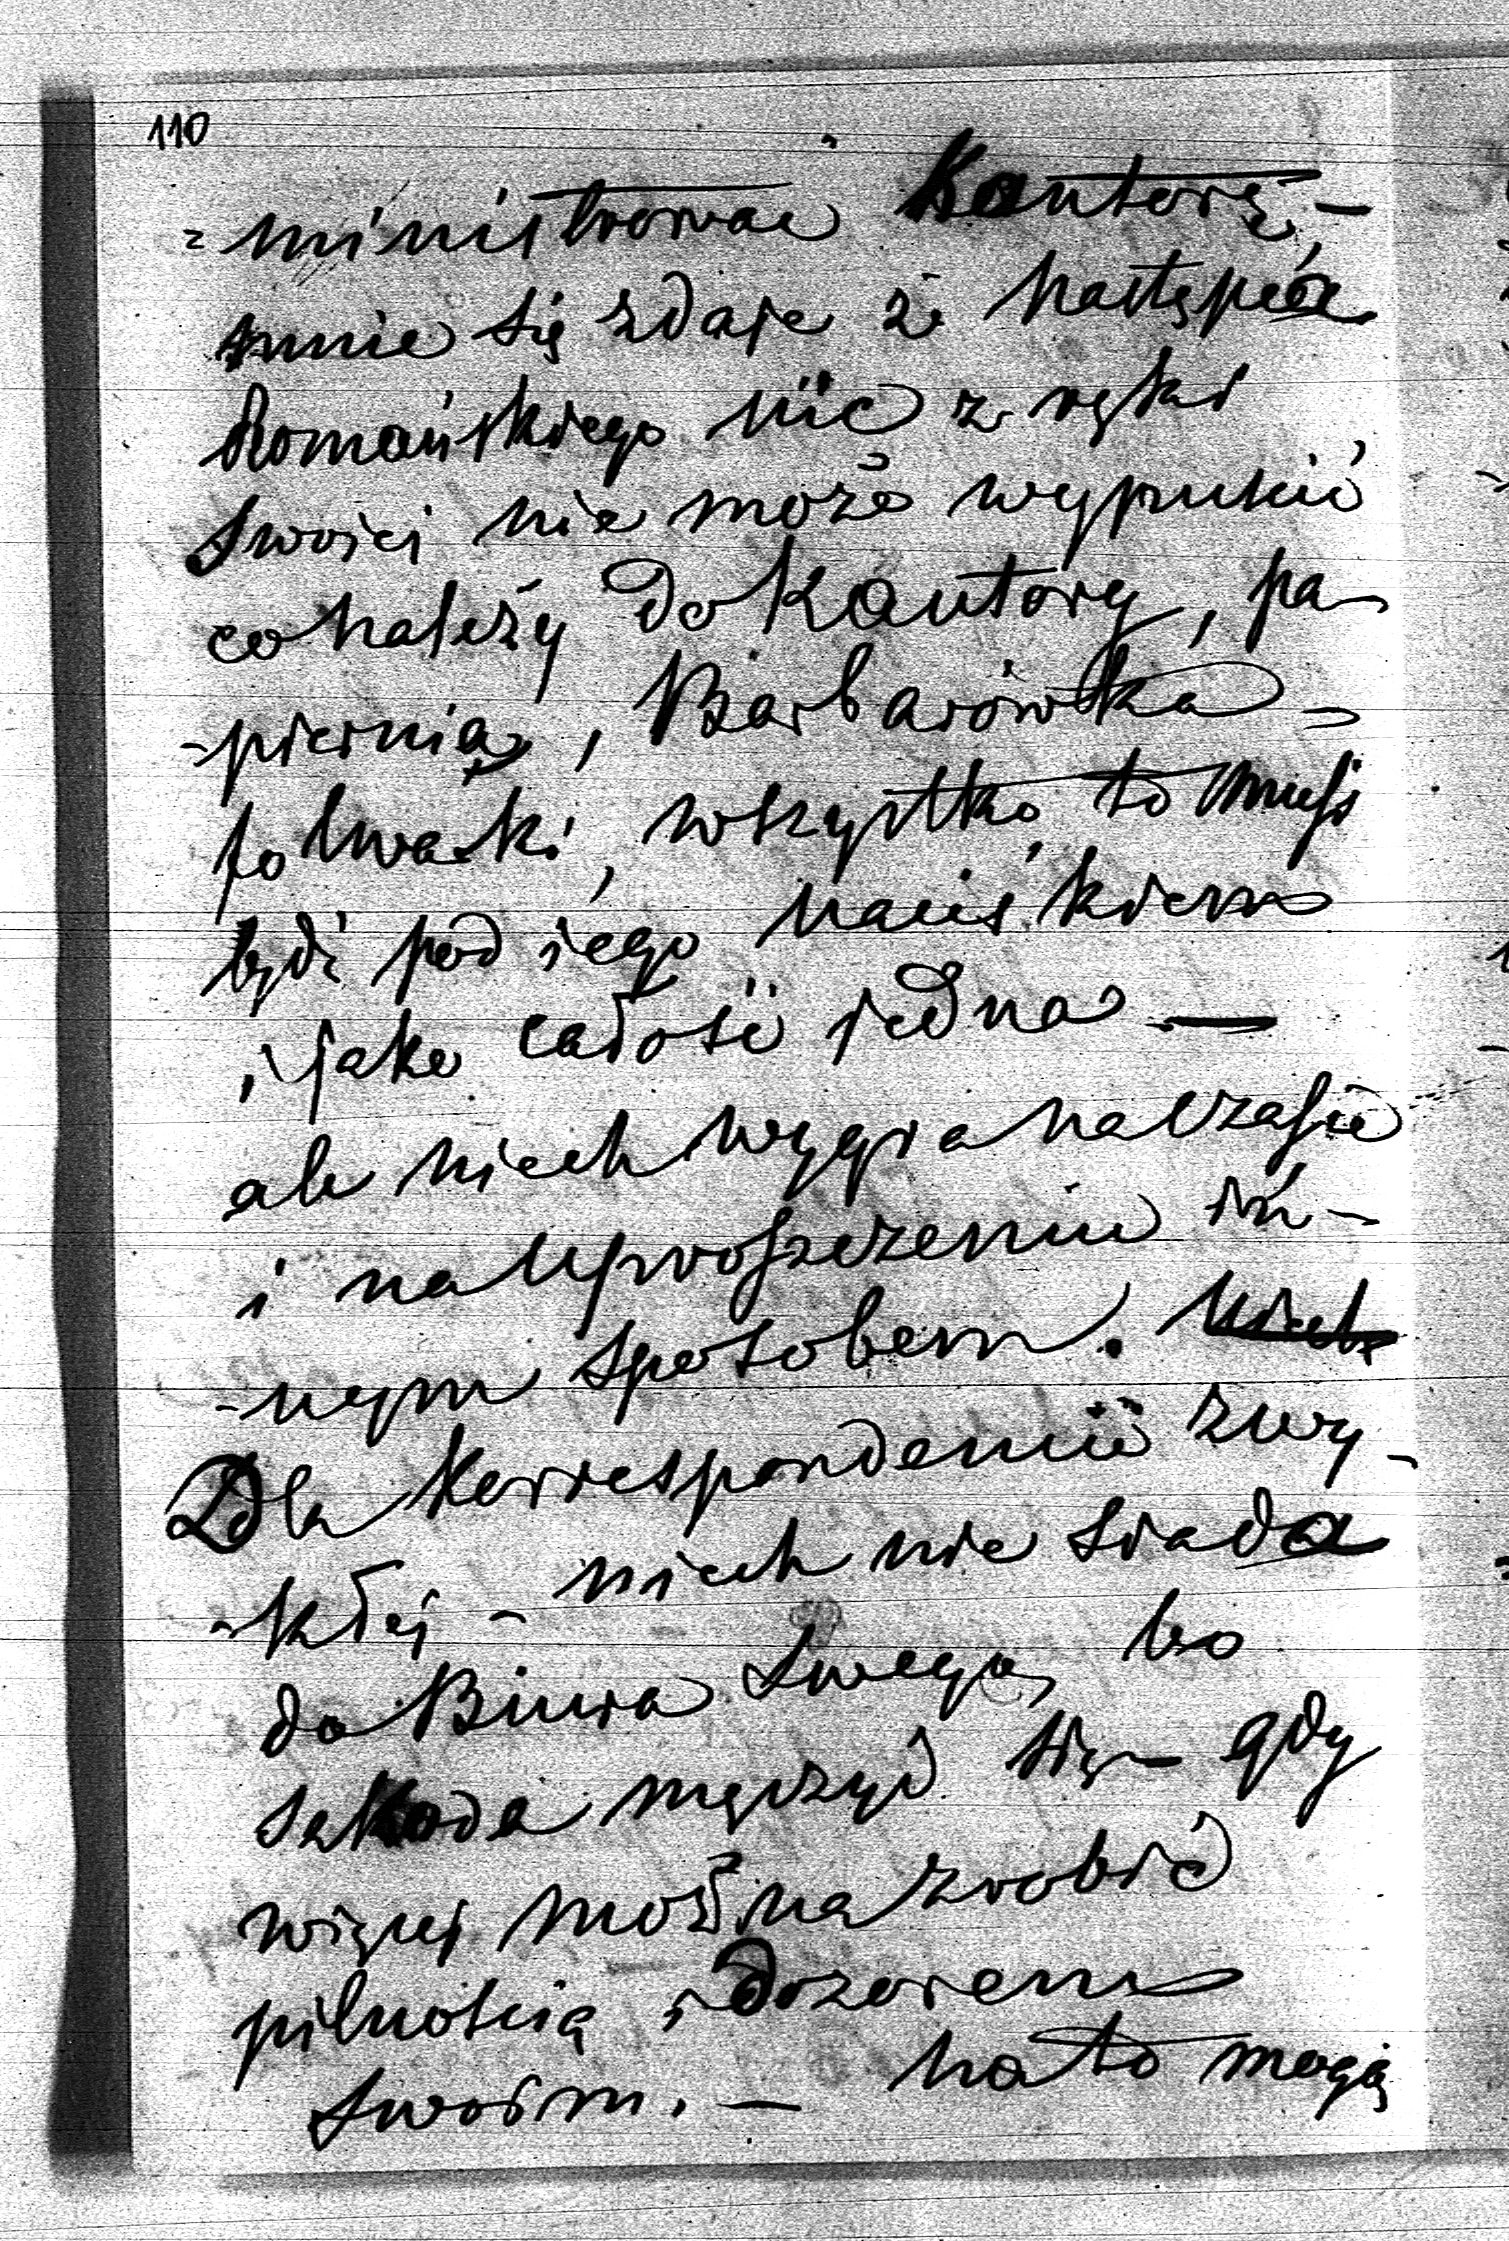 110
=ministrować Kantorę, –
mnie się zdaje że następca
Romańskiego nic z ręki
swojej nie może wypuścić
co należy do Kantory, pa-
-piernia, Barbarówka –
folwarki, wszystko to musi
być pod jego naciskiem
i jako całość jedna —
ale niech wygra na czasie
i na uproszczeniu in-
-nym sposobem. Niech
Dla korrespondencii zwy-
-kłej – niech nie siada
do Biura swego, bo
szkoda męczyć się – gdy
więcej można zrobić
pilnością i dozorem
swoim. – na to mogą